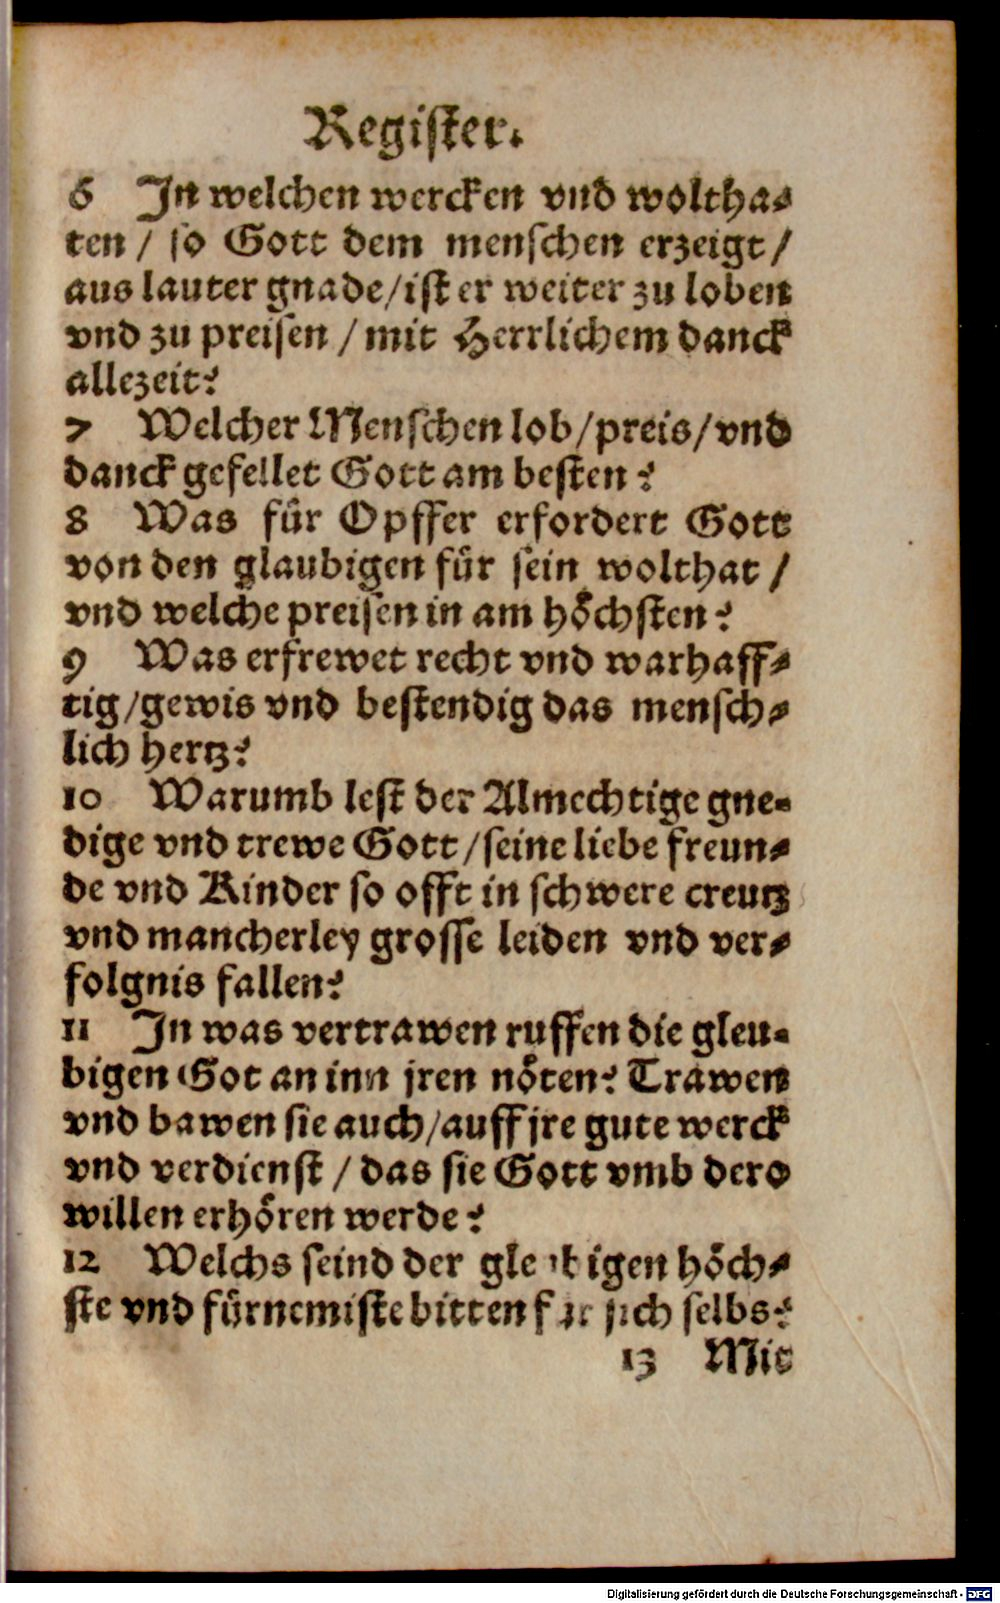 Register.
6 In welchen wercken vnd woltha-
ten / so Gott dem menschen erzeigt /
aus lauter gnade / ist er weiter zu loben
vnd zu preisen / mit Herrlichem danck
allezeit?
7 Welcher Menschen lob / preis / vnd
danck gefellet Gott am besten?
8 Was für Opffer erfordert Gott
von den glaubigen für sein wolthat /
vnd welche preisen in am höchsten?
9 Was erfrewet recht vnd warhaff-
tig / gewis vnd bestendig das mensch-
lich hertz?
10 Warumb lest der Almechtige gne-
dige vnd trewe Gott / seine liebe freun-
de vnd Kinder so offt in schwere creutz
vnd mancherley grosse leiden vnd ver-
folgnis fallen?
11 In was vertrawen ruffen die gleu-
bigen Got an inn jren nöten? Trawen
vnd bawen sie auch / auff jre gute werck
vnd verdienst / das sie Gott vmb dero
willen erhören werde?
12 Welchs seind der höch-
ste vnd fürnemiste bitten sich selbs?
13 Mit
Digitalisierung gefördert durch die Deutsche Forschungsgemeinschaft - DFG